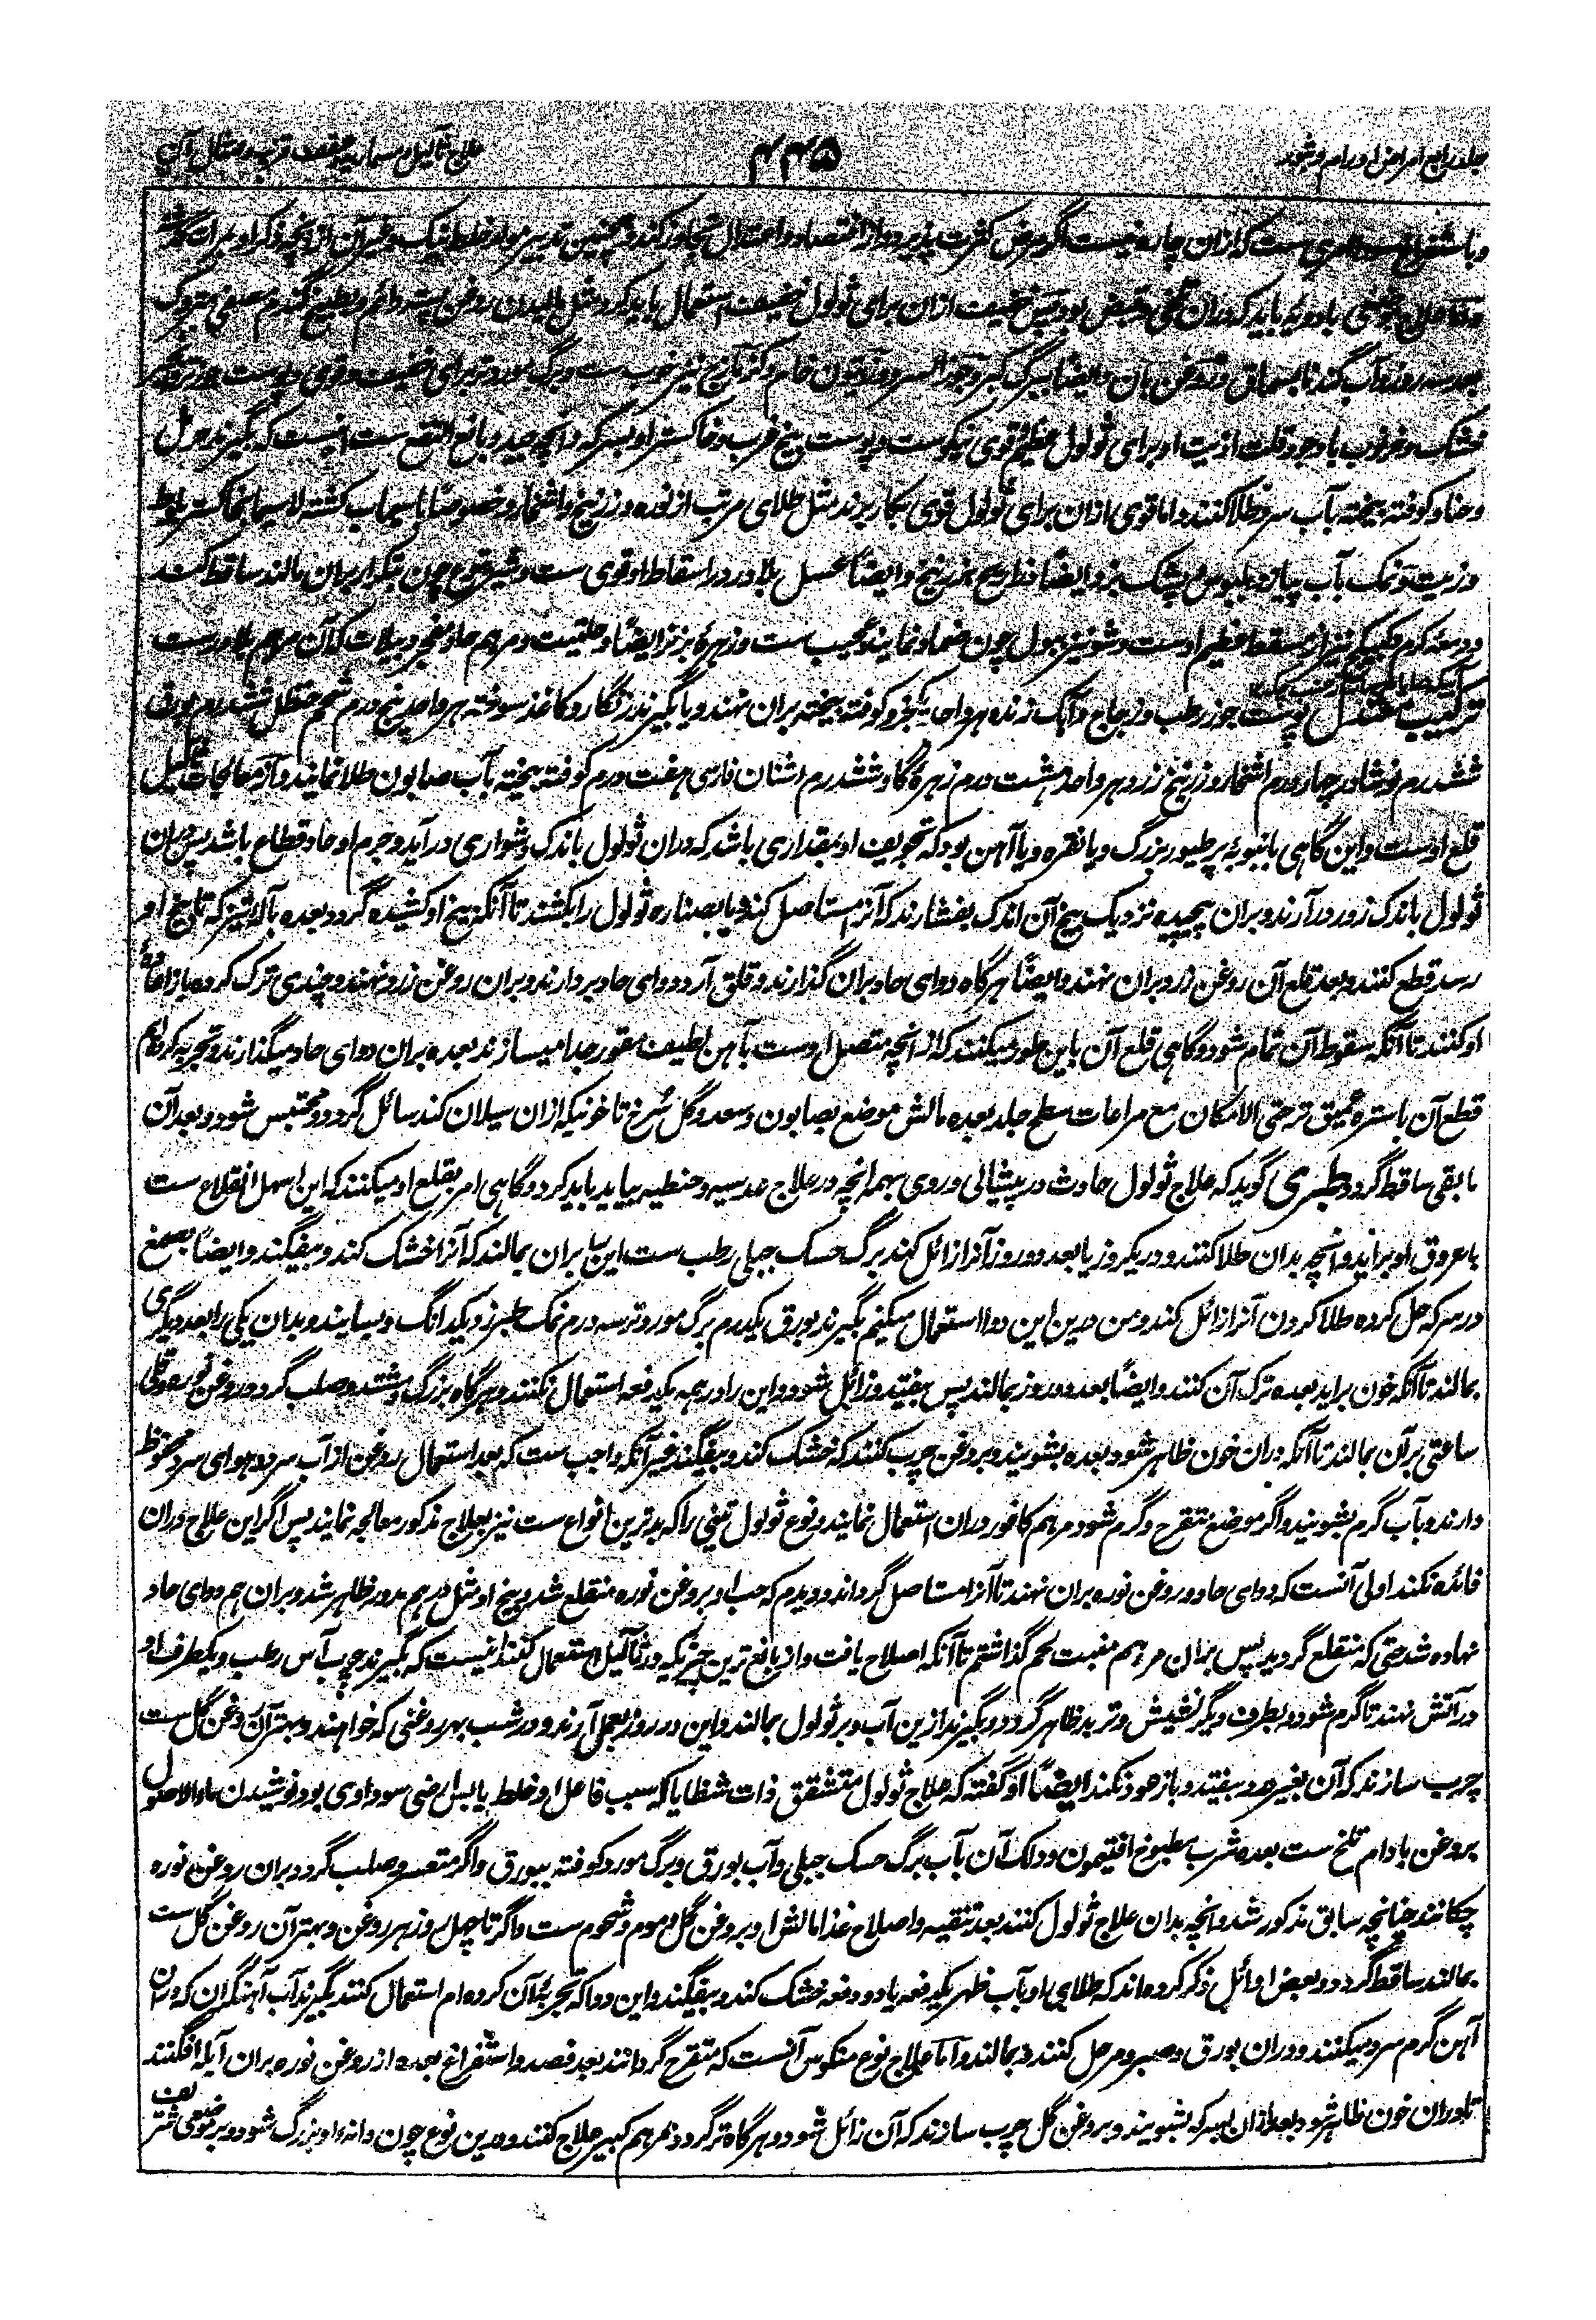 جلد رابع امراض اورام و بثور
۴۴۵
علاج ثآلیل مسماریه
و باستفراغ ست که ازان چاره نیست اگر مرض کثرت پذیرد و از اقتصاد و اعتدال تجاوز کند و همچنین تدبیر مولد خلط نیک و غیر آن از آنچه ذکر او
بادویه باید که دران و قبض بود پس خفیف ازان برای ثولول خفیف استعمال باید کرد مثل مالیدن روغن پسته دائم و بطبیخ گندم
بعد سه روز و آب گندنا بسماق و روغن بان و ایضاً ببرگ کبر و جوز السرو و زیتون خام و نیز خوب ست و برگ مورد تر برای خفیف و قوی و پوست
خشک و خرنوب باوجود قلت اذیت او برای ثولول عظیم قوی نیکوست و پوست بیخ غرب و خاکستر او بسرکه و آنچه جید و بالغ النفع ست اینست که بگیرند
و حنا و کوفته بیخته بآب سرد طلا کنند و اما قوی ازان برای ثولول قوی بکار برند مثل طلای مرتب از نوره و زرنیخ و اشخار و خصوصاً با سیماب کشته لاسیما بخاکستر بلوط
و زیت و نمک بآب پیاز و پشک بز و ایضاً ذراریح بزرنیخ و ایضاً عسل بلادر و در اسقاط او قوی ست و شیر یتوع چون بتکرار بران مالند ساقط کند
و شونیز ببول چون ضماد نمایند عجیب ست و زهره بز نیز ایضاً و حلتیت و مرهم حاد مفجر دبیلات که آن مرهم بلادرست
ترکیب پوست جوز رطب و زجاج و آهک زنده هر واحد یکجزو کوفته بیخته بران نهند و یا بگیرند زنگار و کاغذ سوخته هر واحد پنج درم شحم حنظل ششدرم بورق
ششدرم نوشادر چهار درم اشخار و زرنیخ زرد هر واحد هشت درم زهره گاو ششدرم اشنان فارسی هفت درم کوفته بیخته بآب صابون طلا نمایند و از معالجات ثآلیل
قلع اوست و این گاهی بانبوبه پر طیور بزرگ و یا نقره و یا آهن بود که تجویف او بمقداری باشد که دران ثولول باندک دشواری درآید و جرم او حاد قطاع باشد پس دران
ثولول باندک زور درآرند و بران پیچیده نزدیک بیخ آن اندک بفشارند که آنرا مستاصل کند و یا بصناره ثولول را بکشند تا آنکه بیخ او کشیده گردد بعده بآله تیز که تا بیخ او
رسد قطع کنند و بعد قلع آن روغن زرد بران نهند و ایضاً هرگاه دوای حاد بران گذارند و قلق آرد دوای حاد بردارند و بران روغن زرد نهند و چندی ترک کرده باز اعاده
او کنند تا آنکه سقوط آن تمام شود و گاهی قلع آن باین طور میکنند که از آنچه متصل اوست بآهن لطیف مقور جدا میسازند بعده بران دوای حاد میگذارند و تجربه کرده‌ایم
قطع آن باستره عمیق‌تر حتی الامکان مع مراعات سطح جلد بعده مالش موضع بصابون و سعد و گل سُرخ تا خونیکه ازان سیلان کند سائل گردد و محتبس شود و بعد آن
مابقی ساقط گردد طبری گوید که علاج ثولول حادث در پیشانی و روی بهمه آنچه در علاج عدسیه و حنطیه بیاید باید کرد و گاهی امر بقلع او میکنند که این اسهل انقلاع ست
یا عروق او برآید و آنچه بدان طلا کنند و در یکروز یا بعد دو روز آنرا زائل کند برگ حسک جبلی رطب ست این را بران بمالند که آنرا خشک کند و بیفگند و ایضاً بصمغ
در سرکه حل کرده طلا کردن آنرا زائل کند و من درین این دوا استعمال میکنم بگیرند بورق یکدرم برگ مورد تر سه درم نمک طبرزد یکدانگ و بسایند و بدان یکی را بعد دیگری
بمالند تا آنکه خون برآید بعده ترک آن کنند و ایضاً بعد دو روز بمالند پس بیفتد و زائل شود و این را در همه یکدفعه استعمال نکنند و هرگاه بزرگ و مشتد و صلب گردد روغن نوره
ساعتی برآن بمالند تا آنکه دران خون ظاهر شود بعده بشویند و بروغن چرب کنند که خشک کند و بیفگند غیر آنکه واجب ست که بعد استعمال روغن از آب سرد و هوای سرد محفوظ
دارند و بآب گرم بشویند و اگر موضع متقرح و گرم شود مرهم کافور دران استعمال نمایند و نوع ثولول تینی را که بدترین انواع ست نیز بعلاج مذکور معالجه نمایند پس اگر این علاج دران
فائده نکند اولی آنست که دوای حاد و روغن نوره بران نهند تا آنرا مستاصل گرداند و دیدم که حب او بروغن نوره منقلع شد و بیخ او مثل درهم مدور ظاهر شد و بران هم دوای حاد
نهاده شد حتی که منقلع گردید پس بران مرهم منبت لحم گذاشتم تا آنکه اصلاح یافت و از بالغ‌ترین چیزیکه در ثآلیل استعمال کنند اینست که بگیرند چوب آس رطب و یکطرف او
در آتش نهند تا گرم شود و بطرف دیگر نشیش و تر بد ظاهر گردد و بگیرند ازین آب و بر ثولول بمالند و این در روز بعمل آرند و در شب بهر روغنی که خواهند و بهتر آن روغن گل ست
چرب سازند که آن بغیر درد بیفتد و باز عود نکند ایضاً او گفته که علاج ثولول متشقق ذات شظایا که سبب فاعل او خلط یابس ارضی سوداوی بود نوشیدن ماءالاصول
بروغن بادام تلخ ست بعده شرب مطبوخ افتیمون و دلک آن بآب برگ حسک جبلی و آب بورق و برگ مورد کوفته ببورق و اگر متعسر و صلب گردد بران روغن نوره
چکانند چنانچه سابق مذکور شد و آنچه بدان علاج ثولول کنند بعد تنقیه و اصلاح غذا مالش او بروغن گل و موم و شحوم ست و اگر تا چهل روز هر روغن و بهتر آن روغن گل ست
بمالند ساقط گردد و بعض اوائل ذکر کرده‌اند که طلای او بآب ظهر یکدفعه یا دو دفعه خشک کند و بیفگند و این دوا که تجربه آن کرده‌ام استعمال کنند بگیرند آب آهنگران که دران
آهن گرم سرد میکنند و دران بورق و صبر و مر حل کنند و بمالند و اما علاج نوع منکوس آنست که متقرح گردانند بعد فصد و استفراغ بعده از روغن نوره بران آبله افگنند
تا دران خون ظاهر شود بعد ازان بسرکه بشویند و بروغن گل چرب سازند که آن زائل شود و هرگاه تر گردد بمرهم کبیر علاج کنند و درین نوع چون دانه او بزرگ شود و بر موضعی